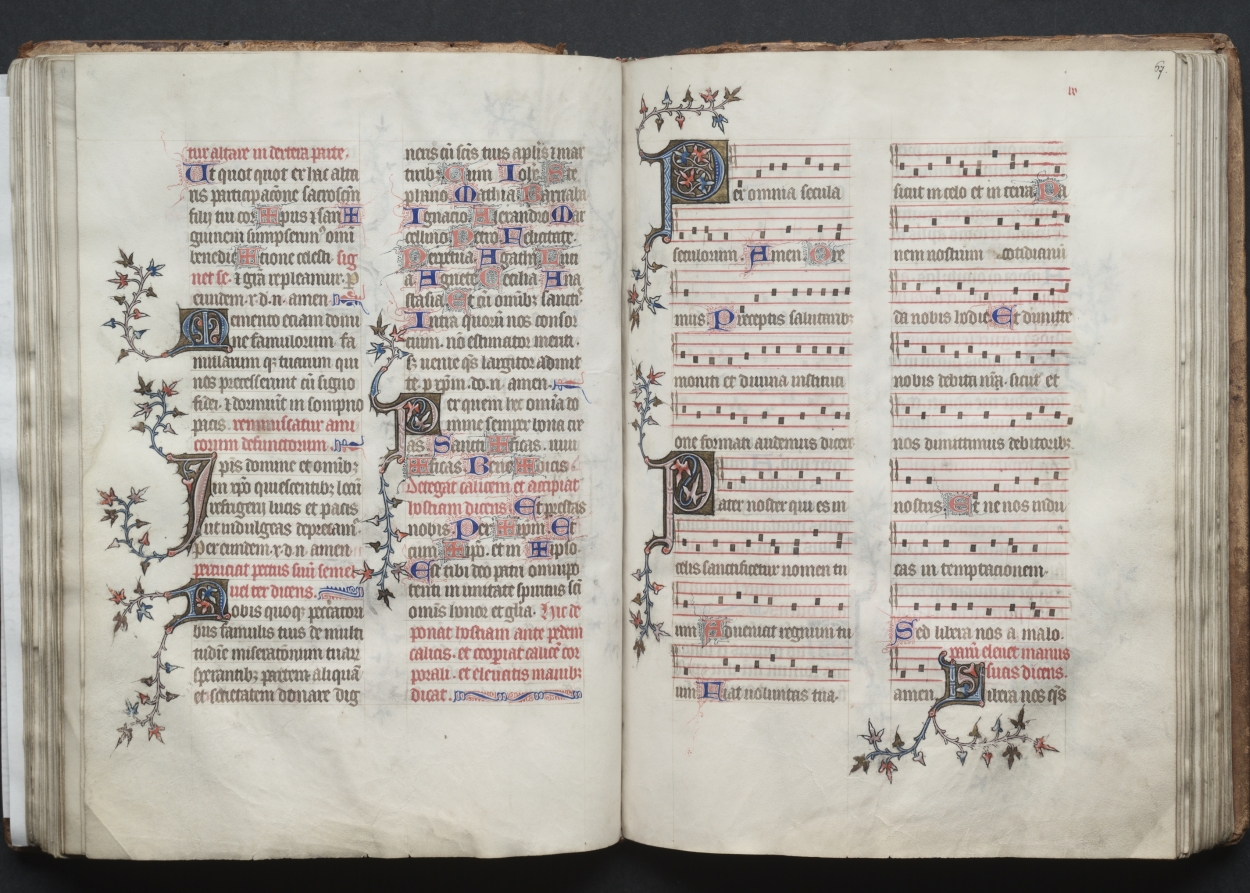 tur altare in dextera parte.
Ut quot quot ex hac alta
ris participacõne sacrosctũ
filij tui cor✠pus ⁊ san✠
guinem sumpserim⁹ omi
benedic✠tione celesti sig
net se. ⁊ grã repleamur. P
eundem. x. d. n. amen.
Memento etiam domi
ne famulorum fa
mularum q; tuarum qui
nos precesserunt cũ signo
fidei. ⁊ dormiũt in sompno
pacis. reminiscatur ami
corum defunctorum.
Ipis domine et omibꝫ
in xpõ quiescentibꝫ locũ
refrigerij lucis et pacis
ut indulgeas deprecam̃
per eundem. x. d. n. amen.
percuciat pectus suũ semel
uel ter dicens.
Nobis quoqꝫ peccatori
bus famulis tuis de multi
tudiñe miserationum tuar
sperantibꝫ partem aliquã
et societatem donare dig
neris cũ scĩs tuis aplĩs ⁊ mar
tiribꝫ. Cum Ioh̃e. Ste
phano. Mathia. Barnaba
Ignacio. Alexandro. Mar
cellino. Petro. Felicitate.
Perpetua. Agatha. Luci
a. Agnete. Cecilia. Ana
stasia. Et cũ omibꝫ sanctis
Intra quorũ nos consor
cium. nõ estimator meriti.
sꝫ uenie qs̃ largitor admit
te. p xp̃m. do. n. amen.
Per quem hec omĩa do
mine semper bona cre
as. Sancti✠ficas. uiui
✠ficas. Bene✠dicis.
Detegat calicem et accipiat
hostiam dicens. Et prestas
nobis. Per ✠ipsum. Et
cum ✠ipõ. et in ✠ipso.
Est tibi deo patri omnipo
tenti in unitate spiritus sci
omĩs honor et glĩa. Hic de
ponat hostiam ante pedem
calicis. et cooperiat calicẽ cor
porali. et eleuatis manibꝫ
dicat.
57
lv
Per omnia secula
seculorum. Amen. Ore
mus. Preceptis salutaribꝫ
moniti et diuina instituci
one formati audemus dicere
Pater noster qui es in
celis sanctificetur nomen tu
um. Adueniat regnum tu
um. Fiat uoluntas tua.
sicut in celo et in terra. Pa
nem nostrum cotidianũ
da nobis hodie. Et dimitte
nobis debita nr̃a. sicut et
nos dimittimus debitoribꝫ
nostris. Et ne nos indu
cas in temptacionem.
Sed libera nos a malo.
parũ eleuet manus
suas dicens.
amen. Libera nos qs̃